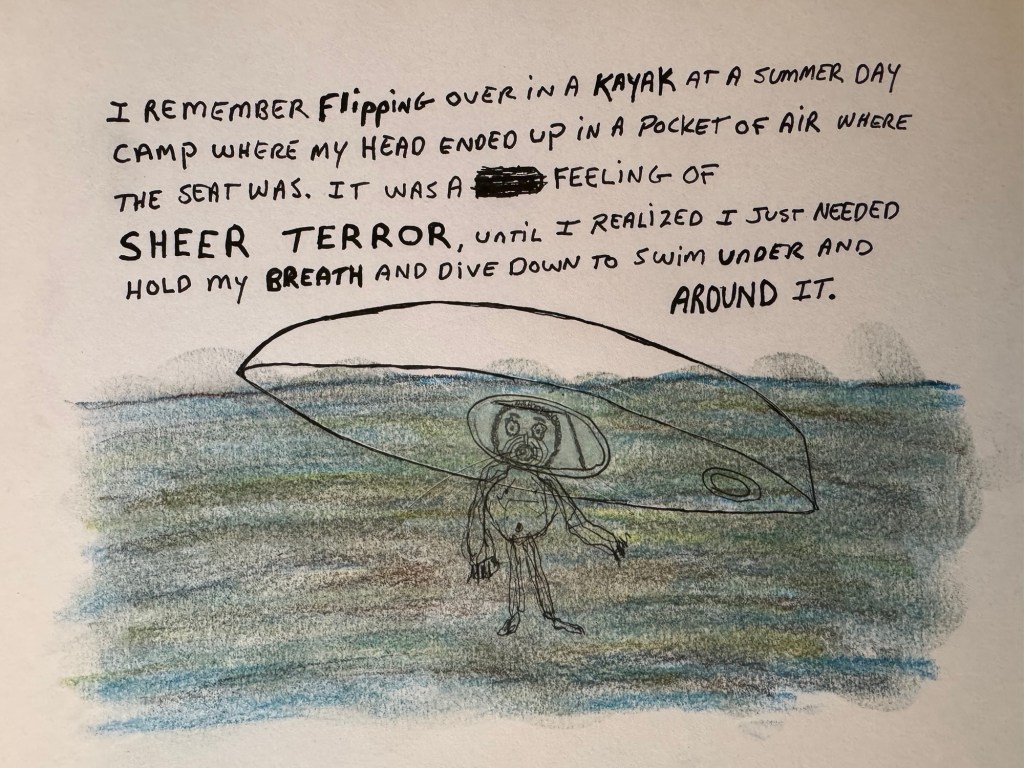 I REMEMBER FlippinG OVER iN A KAYAK AT A SUMMER DAY
CAMP WHERE MY HEAD ENDED UP iN A POCKET OF AiR WHERE
THE SEAT WAS. IT WAS A FEELiNG OF
SHEER TERROR, UNTiL I REALiZED I JUST NEEDED
HOLD MY BREATH AND DiVE DOWN TO SWiM UNDER AND
AROUND IT.